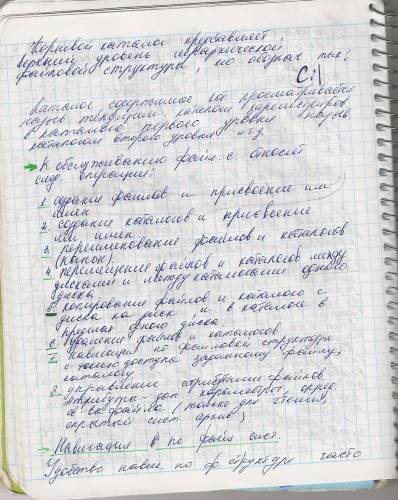 Корневой каталог представляет
верхний уровень иерархической
файловой структуры, его обознач так:
C:\
Каталог содержимое кот просматривается
назыв текущим, каталоги зарегистриров
в каталоге первого уровня назыв
каталогом второго уровня и т.д.
К обслуживанию файл. с. относят
след операции:
1. создание файлов и присвоение им
имен
2. создание каталогов и присвоение
им имен
3. переименование файлов и каталогов
(папок)
4. перемещение файлов и каталогов между
дисками и между каталогами одного
диска
5. копирование файлов и каталогов с
диска на диск и в каталоге в
пределах одного диска
6. удаление файлов и каталогов
7. навигация по файловой структуре
с целью доступа заданному файлу,
каталогу
8. управление атрибутами файлов
атрибуты - доп. параметры, опред
св-ва файла (только для чтения,
скрытый сист архив)
Навигация в по файл сист.
Удобство навиг. по ф структуре часто